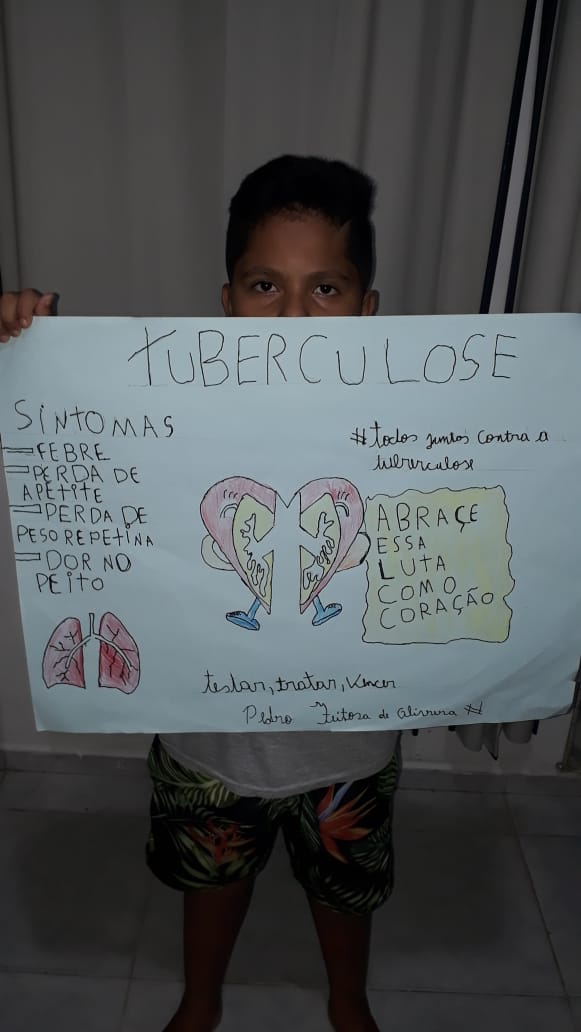 TUBERCULOSE
SINTOMAS
=FEBRE
=PERDA DE
APETITE
=PERDA DE
PESO REPETINA
=DOR NO
PEITO
#todos juntos contra a
tuberculose
ABRAÇE
ESSA
LUTA
COMO
CORAÇÃO
testar, tratar, Vencer
Pedro Feitosa de Oliveira #